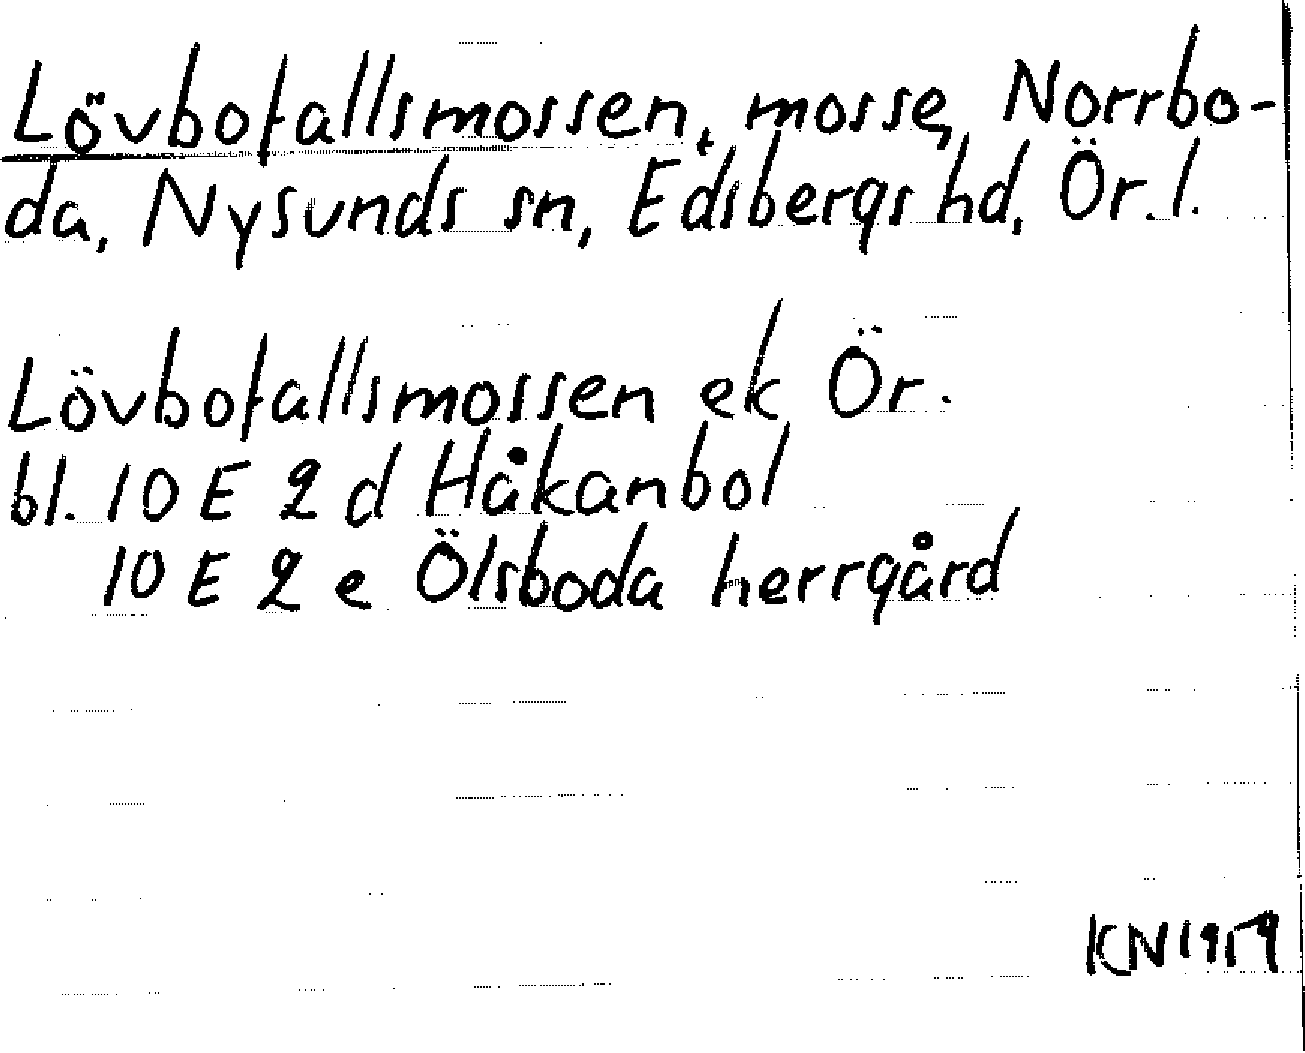 Lövbofallsmossen, mosse, Norrbo-
da, Nysunds sn, Edsbergs hd, Ör. l.
Lövbofallsmossen ek Ör.
bl. 10 E 2 d Håkanbol
10 E 2 e Ölsboda herrgård
KN 1959